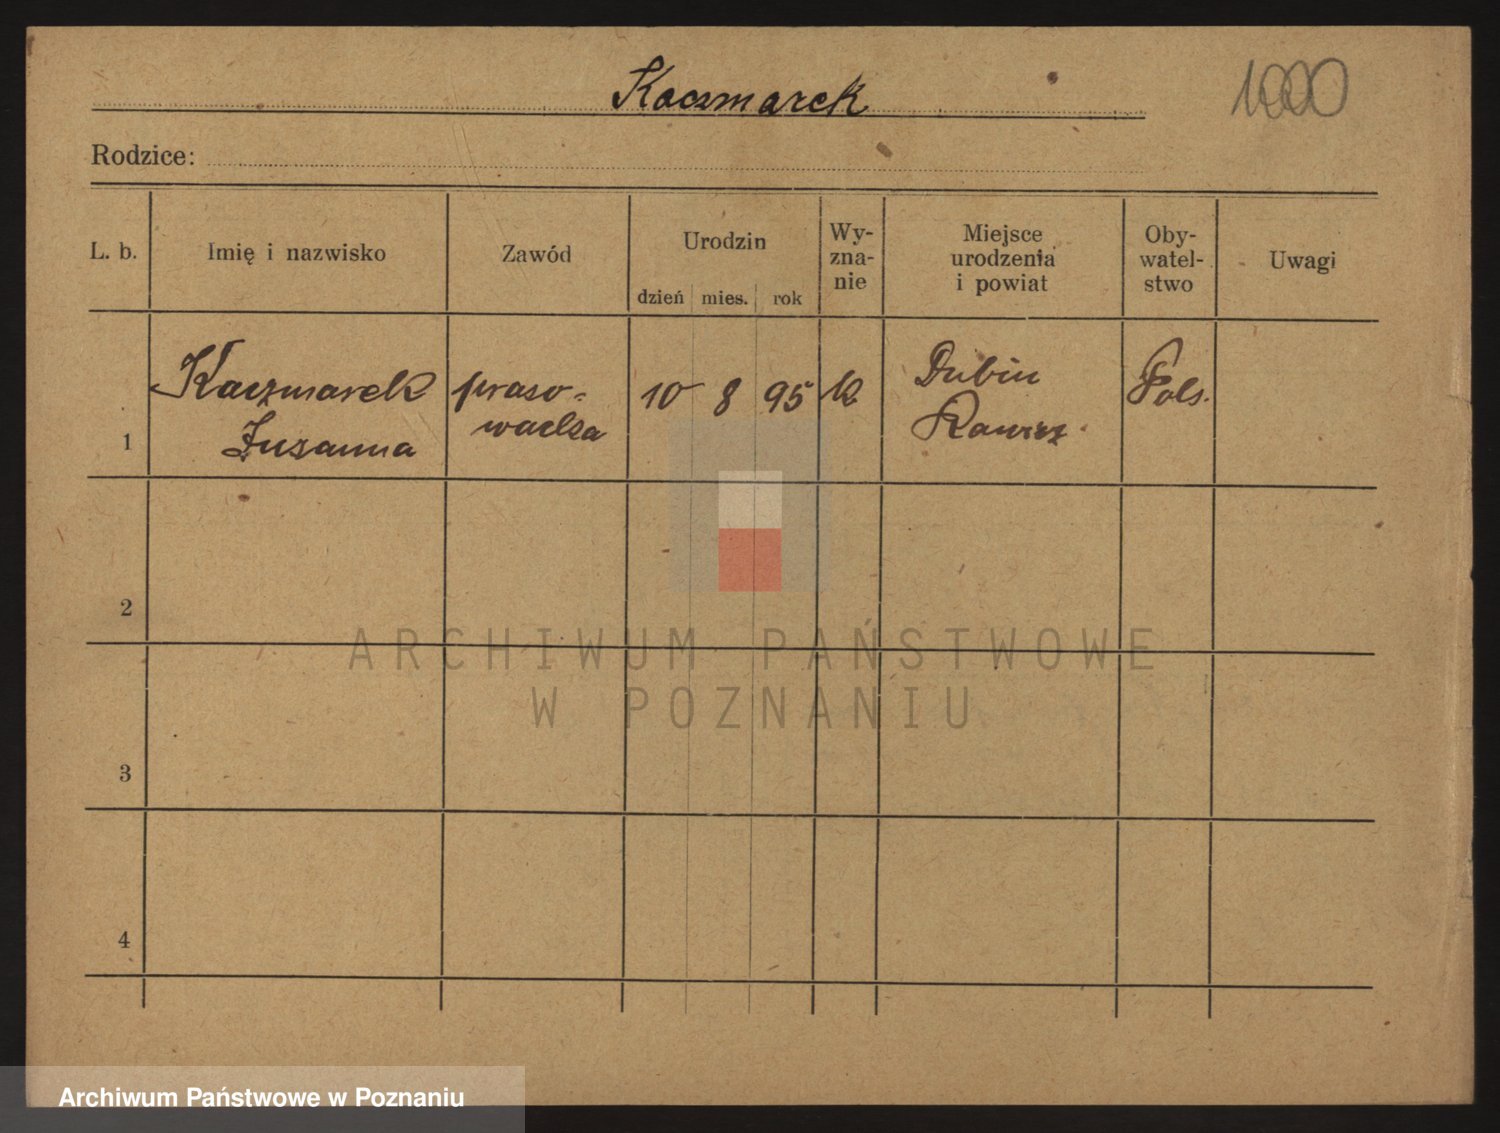 Kaczmarek
1000
Rodzice:
L. b.
Imię i nazwisko
Zawód
Urodzin
dzień mies. rok
Wy-
zna-
nie
Miejsce
urodzenia
i powiat
Oby-
watel-
stwo
Uwagi
1
Kaczmarek
Zuzanna
praso-
waczka
10 8 95
k
Dubin
Rawicz
Pols.
2
3
4
ARCHIWUM PAŃSTWOWE
W POZNANIU
Archiwum Państwowe w Poznaniu